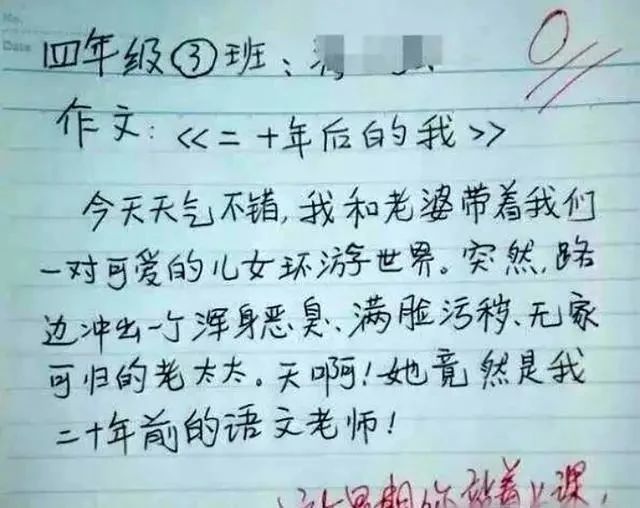 No.
Date
四年级③班:
0
作文:《二十年后的我》
今天天气不错,我和老婆带着我们
一对可爱的儿女环游世界。突然,路
边冲出一个浑身恶臭、满脸污秽、无家
可归的老太太。天啊!她竟然是我
二十年前的语文老师!
你站着上课,